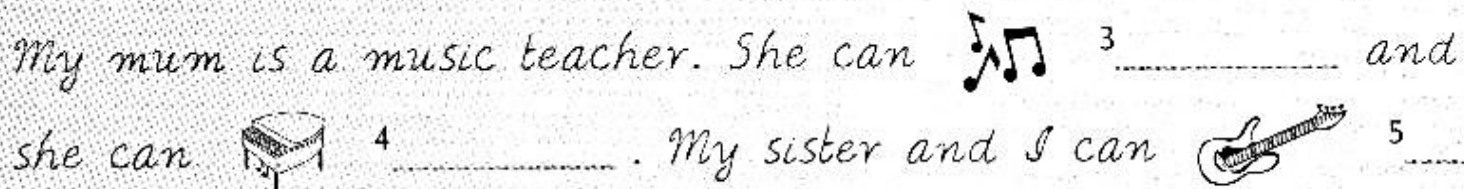 My mum is a music teacher. She can 3 ............ and
she can 4 ............ . My sister and I can 5 ....